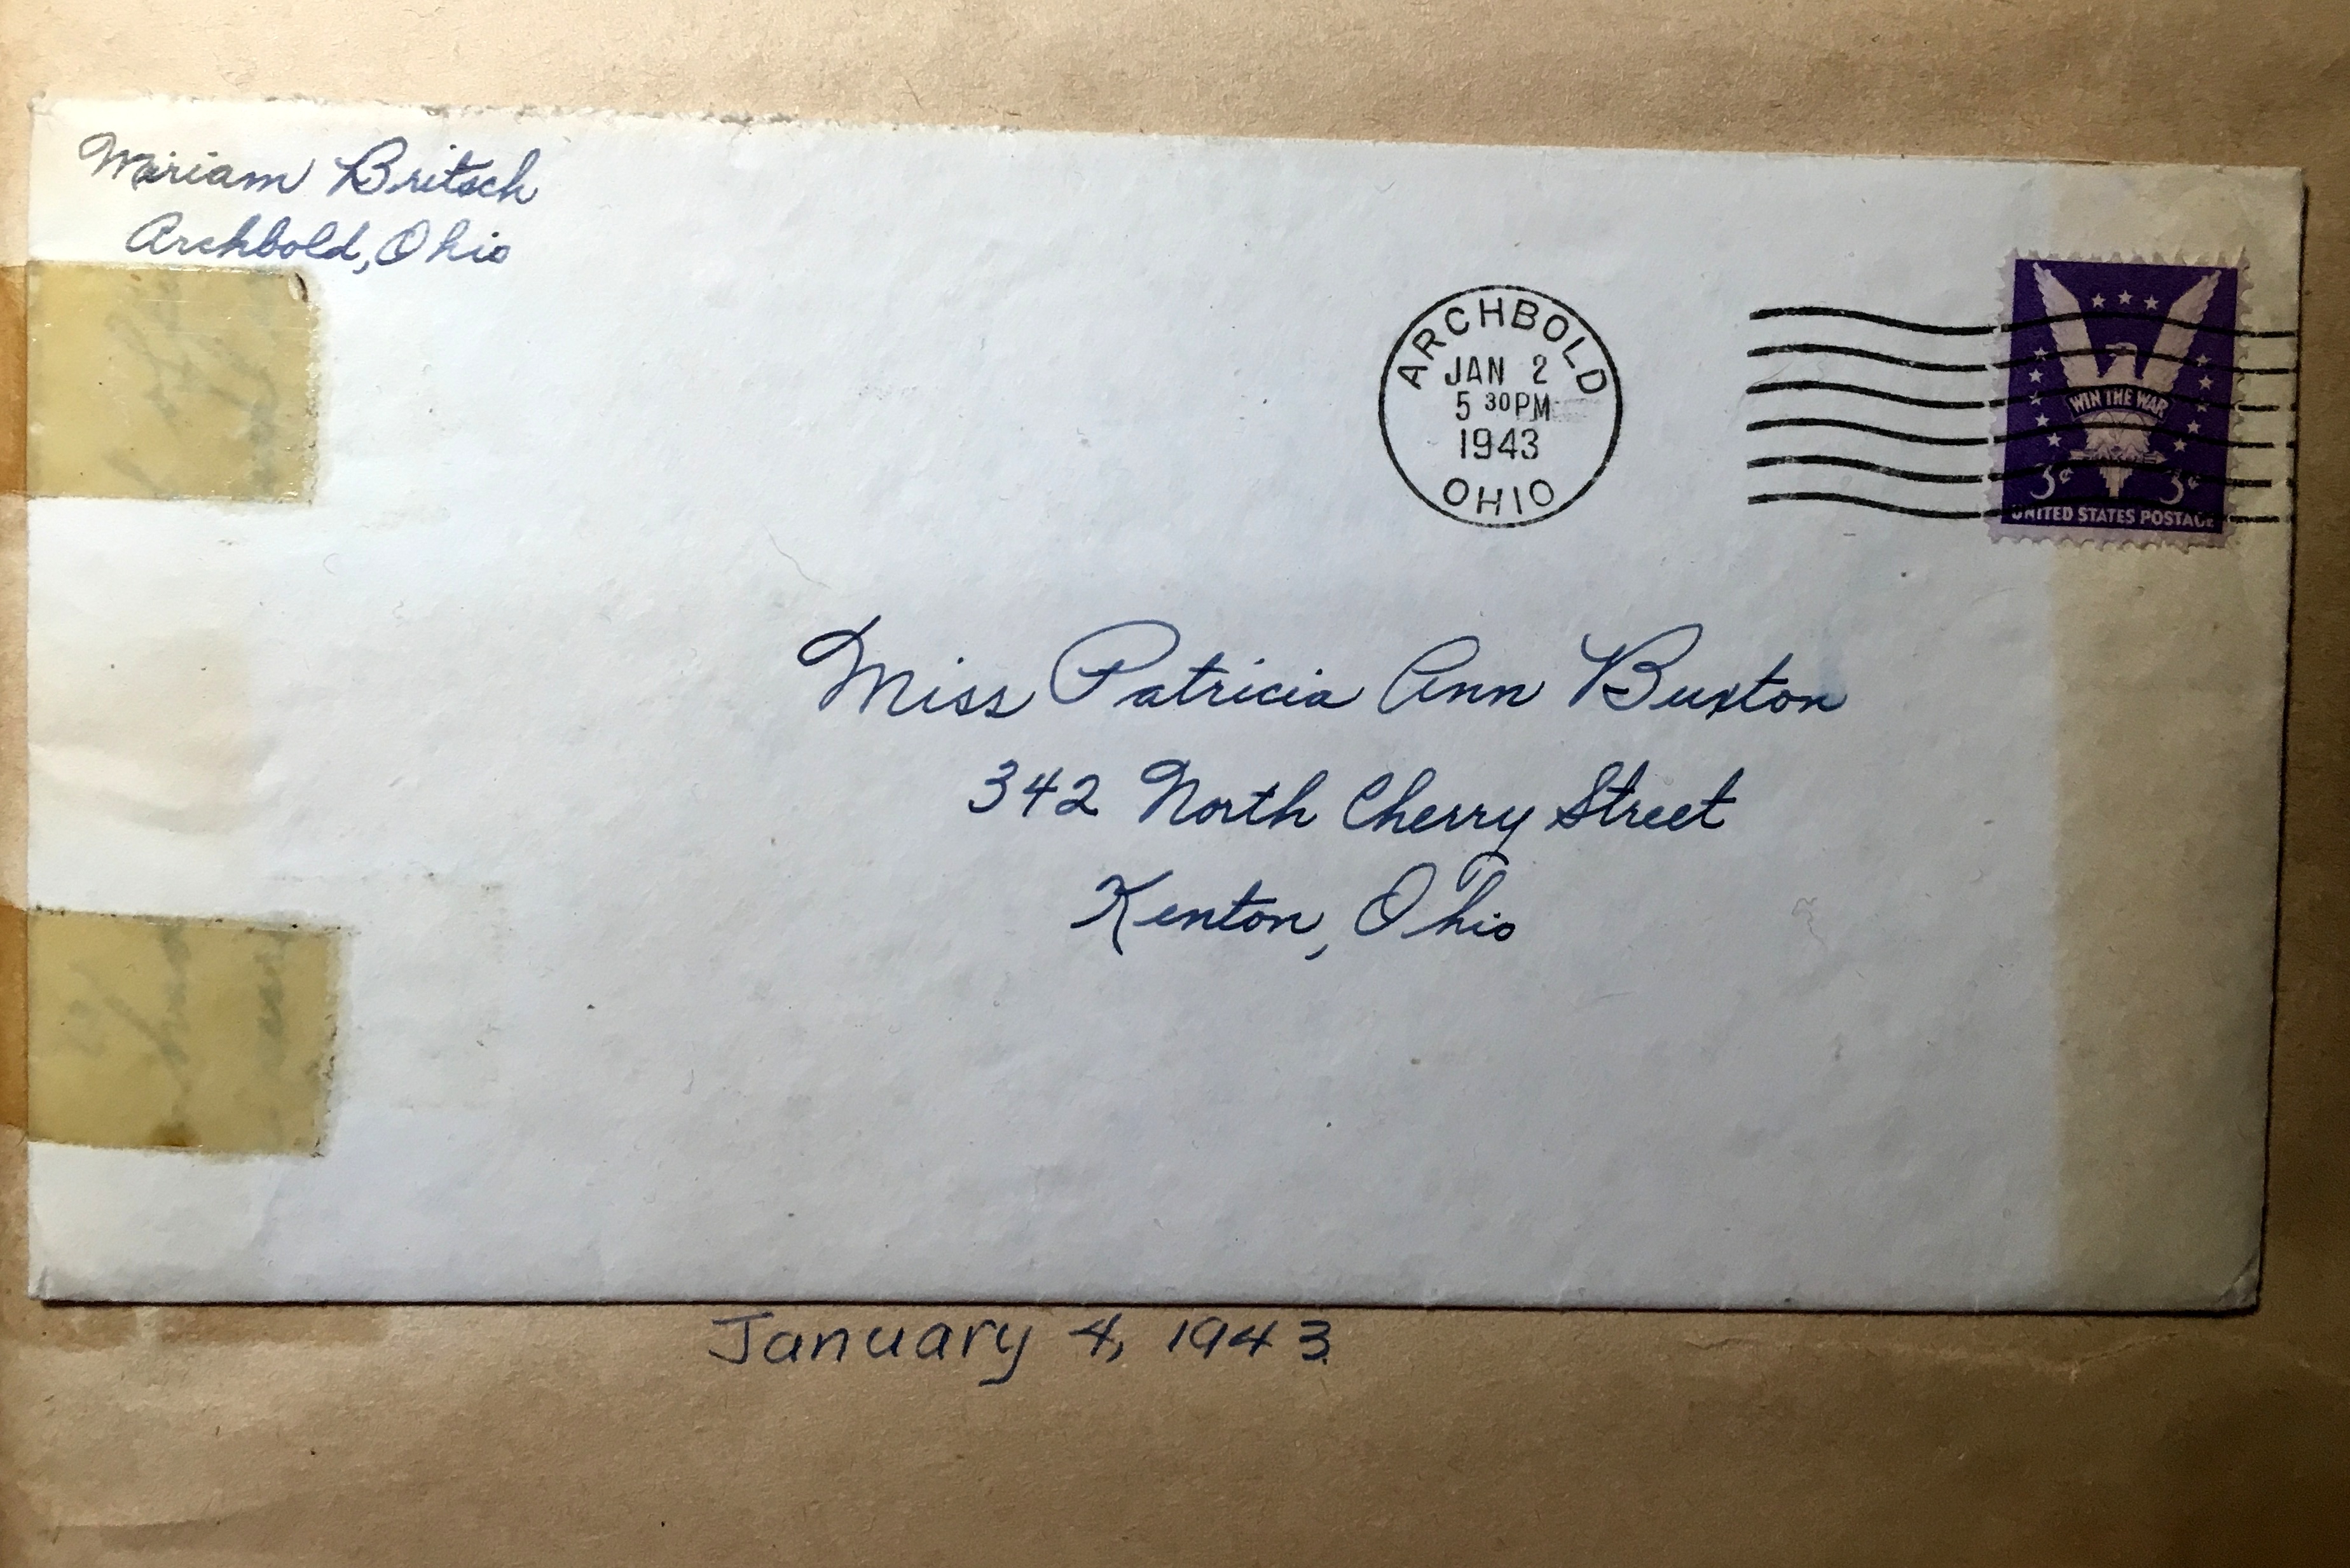 Miriam Britsch
Archbold, Ohio
ARCHBOLD
JAN 2
5 30PM
1943
OHIO
WIN THE WAR
3¢ 3¢
UNITED STATES POSTAGE
Miss Patricia Ann Buxton
342 North Cherry Street
Kenton, Ohio
January 4, 1943.